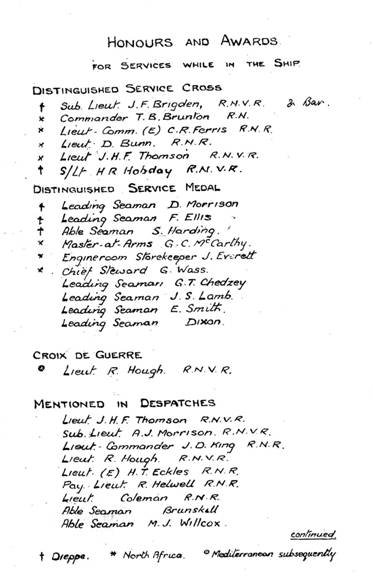 HONOURS AND AWARDS
FOR SERVICES WHILE IN THE SHIP
DISTINGUISHED SERVICE CROSS
† Sub. Lieut. J. F. Brigden, R.N.V.R. & Bar.
* Commander T. B. Brunton R.N.
* Lieut - Comm. (E) C.R. Ferris R.N.R.
* Lieut. D. Bunn. R.N.R.
* Lieut J.H.F. Thomson R.N.V.R.
† S/Lt H R Hobday R.N.V.R.
DISTINGUISHED SERVICE MEDAL
† Leading Seaman D. Morrison
† Leading Seaman F. Ellis
† Able Seaman S. Harding.
* Master-at-Arms G.C. McCarthy.
* Engineroom Storekeeper J. Everett
* Chief Steward G. Wass.
Leading Seaman G.T. Chedzey
Leading Seaman J.S. Lamb.
Leading Seaman E. Smith.
Leading Seaman Dixon.
CROIX DE GUERRE
° Lieut. R. Hough. R.N.V.R.
MENTIONED IN DESPATCHES
Lieut. J.H.F. Thomson R.N.V.R.
Sub. Lieut. A.J. Morrison. R.N.V.R.
Lieut - Commander J.D. King R.N.R.
Lieut. R. Hough. R.N.V.R.
Lieut. (E) H.T. Eckles R.N.R.
Pay. Lieut. R. Helwell R.N.R.
Lieut. Coleman R.N.R.
Able Seaman Brunskill
Able Seaman M.J. Willcox.
continued.
† Dieppe. * North Africa. ° Mediterranean subsequently